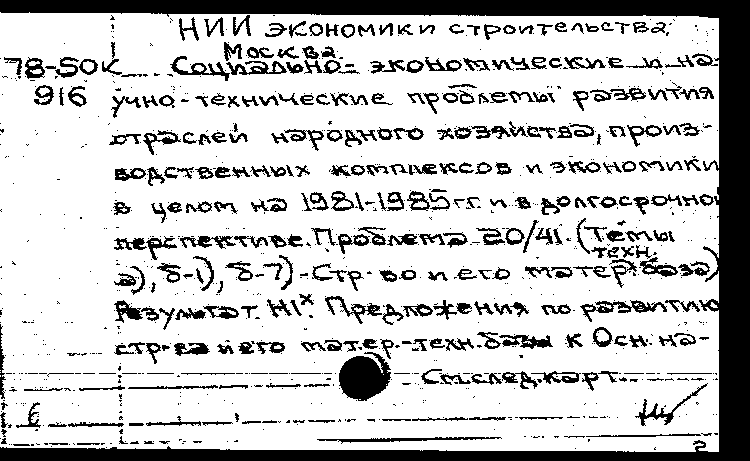 НИИ экономики строительства,
Москва
78-50К Социально-экономические и на-
916 учно-технические проблемы развития
отраслей народного хозяйства, произ-
водственных комплексов и экономики
в целом на 1981-1985 гг. и в долгосрочной
перспективе. Проблема 20/41. (Темы
техн.
а), б-1), б-7) - Стр-во и его матер. база)
Результат. Н1ˣ. Предложения по развитию
стр-ва и его матер.-техн. базы к Осн. на-
См. след. карт.
6
2